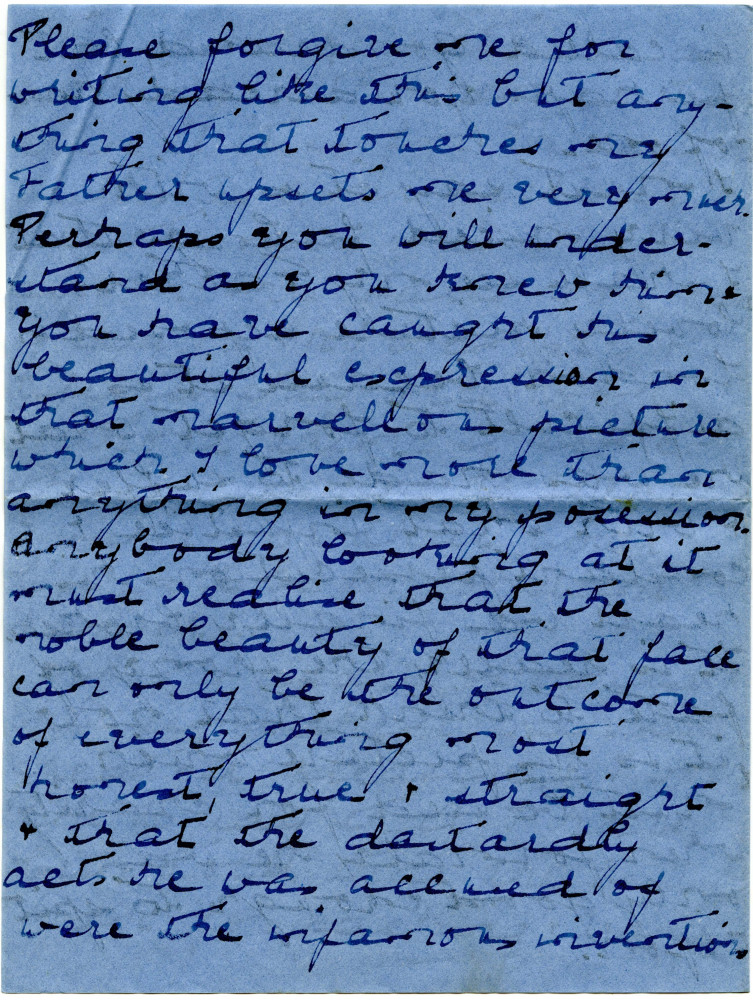 Please forgive me for
writing like this but any-
thing that touches my
Father upsets me very much.
Perhaps you will under-
stand as you knew him.
You have caught his
beautiful expression in
that marvellous picture
which I love more than
anything in my posession.
Anybody looking at it
must realise that the
noble beauty of that face
can only be the outcome
of everything most
honest, true & straight
& that the dastardly
acts he was accused of
were the infamous inventions